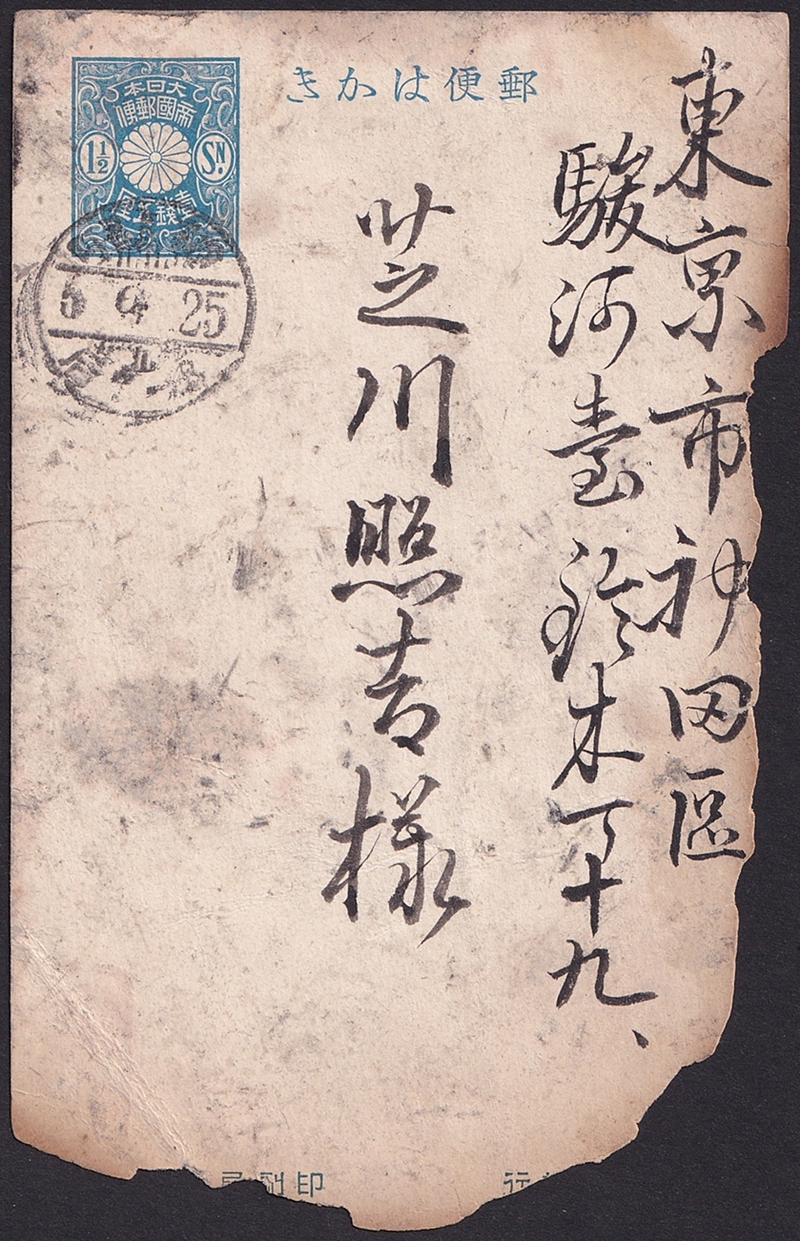 郵便はかき
大日本
帝國郵便
1½
SN.
壹錢五厘
5 9 25
東京市神田區
駿河臺鈴木丁十九、
芝川照吉様
印刷局
行